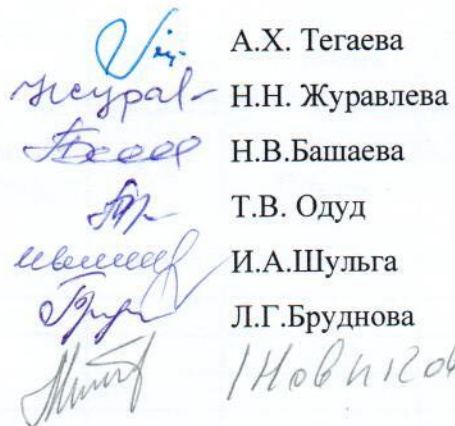 А.Х. Тегаева
Журав Н.Н. Журавлева
Н.В.Башаева
Т.В. Одуд
И.А.Шульга
Л.Г.Бруднова
/Новиков